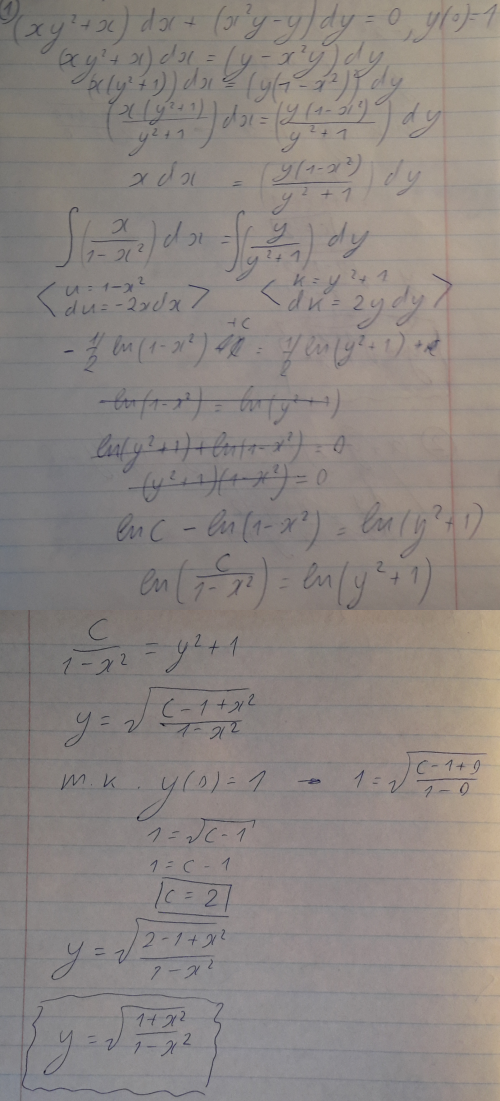 ① (xy²+x) dx + (x²y-y) dy = 0, y(0)=1
(xy²+x) dx = (y-x²y) dy
(x(y²+1)) dx = (y(1-x²)) dy
(x(y²+1)/y²+1) dx = (y(1-x²)/y²+1) dy
x dx = (y(1-x²)/y²+1) dy
∫(x/1-x²) dx = ∫(y/y²+1) dy
<u=1-x² du=-2xdx> <k=y²+1 dk=2ydy>
-1/2 ln(1-x²) +C = 1/2 ln(y²+1)
-ln(1-x²) = ln(y²+1)
ln(y²+1)+ln(1-x²) = 0
(y²+1)(1-x²) = 0
ln C - ln(1-x²) = ln(y²+1)
ln(C/1-x²) = ln(y²+1)
C/1-x² = y²+1
y = √(C-1+x²/1-x²)
т.к. y(0)=1 → 1=√(C-1+0/1-0)
1=√(C-1)
1=C-1
C=2
y=√(2-1+x²/1-x²)
y=√(1+x²/1-x²)